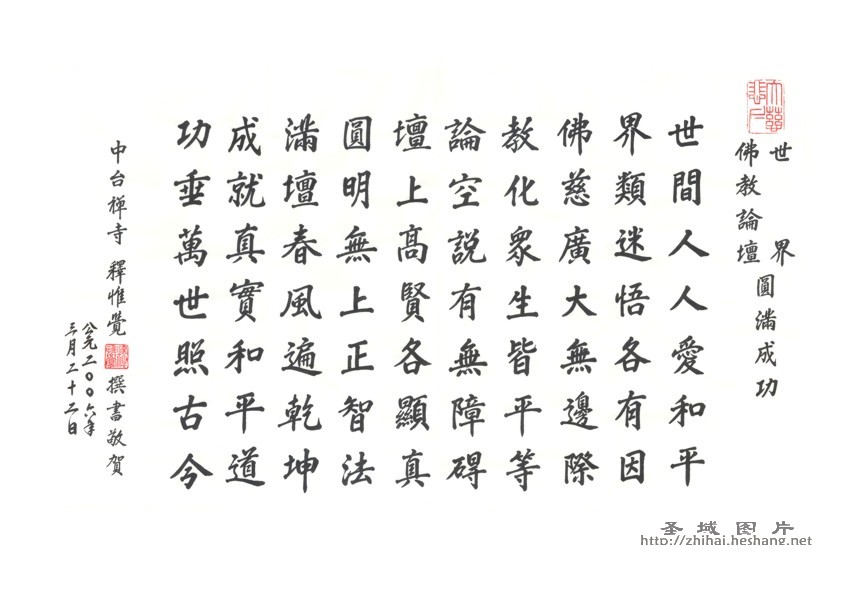 世界佛教論壇圓滿成功
世間人人愛和平
界類迷悟各有因
佛慈廣大無邊際
教化眾生皆平等
論空說有無障碍
壇上高賢各顯真
圓明無上正智法
滿壇春風遍乾坤
成就真實和平道
功垂萬世照古今
中台禪寺 釋惟覺 撰書敬賀
公元二00六年
三月二十二日
圣域图片
http://zhihai.heshang.net